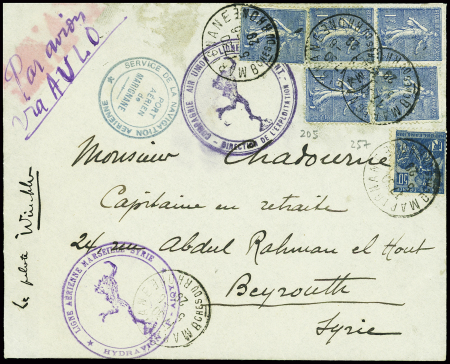 Par avion
via AULO
SERVICE DE LA NAVIGATION AÉRIENNE
PORT
AÉRIEN
de
MARIGNANE
COMPAGNIE AIR UNION
DIRECTION DE L'EXPLOITATION
205
257
Monsieur Chadourne
Capitaine en retraite
24 rue Abdul Rahman el Hout
Beyrouth
Syrie
Le pilote Winckler
LIGNE AÉRIENNE MARSEILLE SYRIE
HYDRAVION